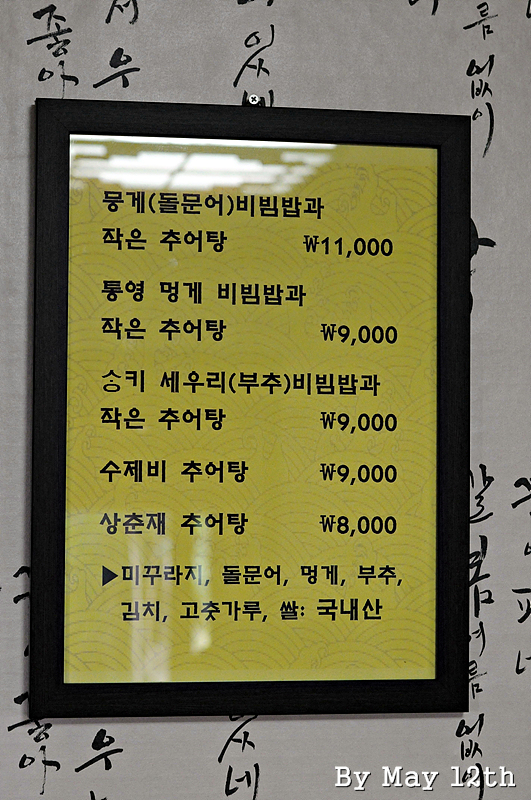 좋아
우
름 없이
뭉게(돌문어)비빔밥과
작은 추어탕 ₩11,000
통영 멍게 비빔밥과
작은 추어탕 ₩9,000
송키 세우리(부추)비빔밥과
작은 추어탕 ₩9,000
수제비 추어탕 ₩9,000
상춘재 추어탕 ₩8,000
▶미꾸라지, 돌문어, 멍게, 부추,
김치, 고춧가루, 쌀: 국내산
여름 없이
좋아
우
네
By May 12th